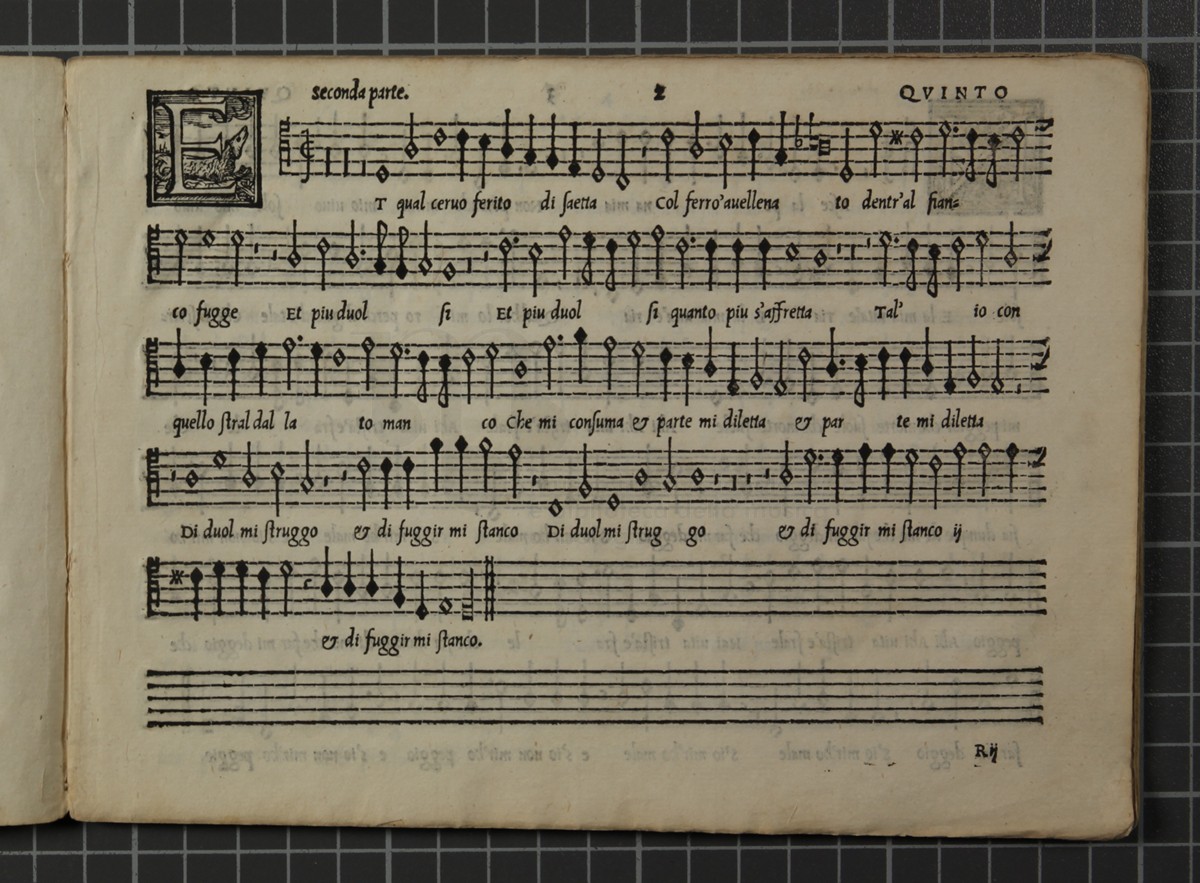 seconda parte. 2 QVINTO
ET qual ceruo ferito di saetta Col ferro'auellena to dentr'al fian=
co fugge Et piu duol si Et piu duol si quanto piu s'affretta Tal' io con
quello stral dal la to man co Che mi consuma & parte mi diletta & par te mi diletta
Di duol mi struggo & di fuggir mi stanco Di duol mi strug go & di fuggir mi stanco ij
& di fuggir mi stanco.
R ij